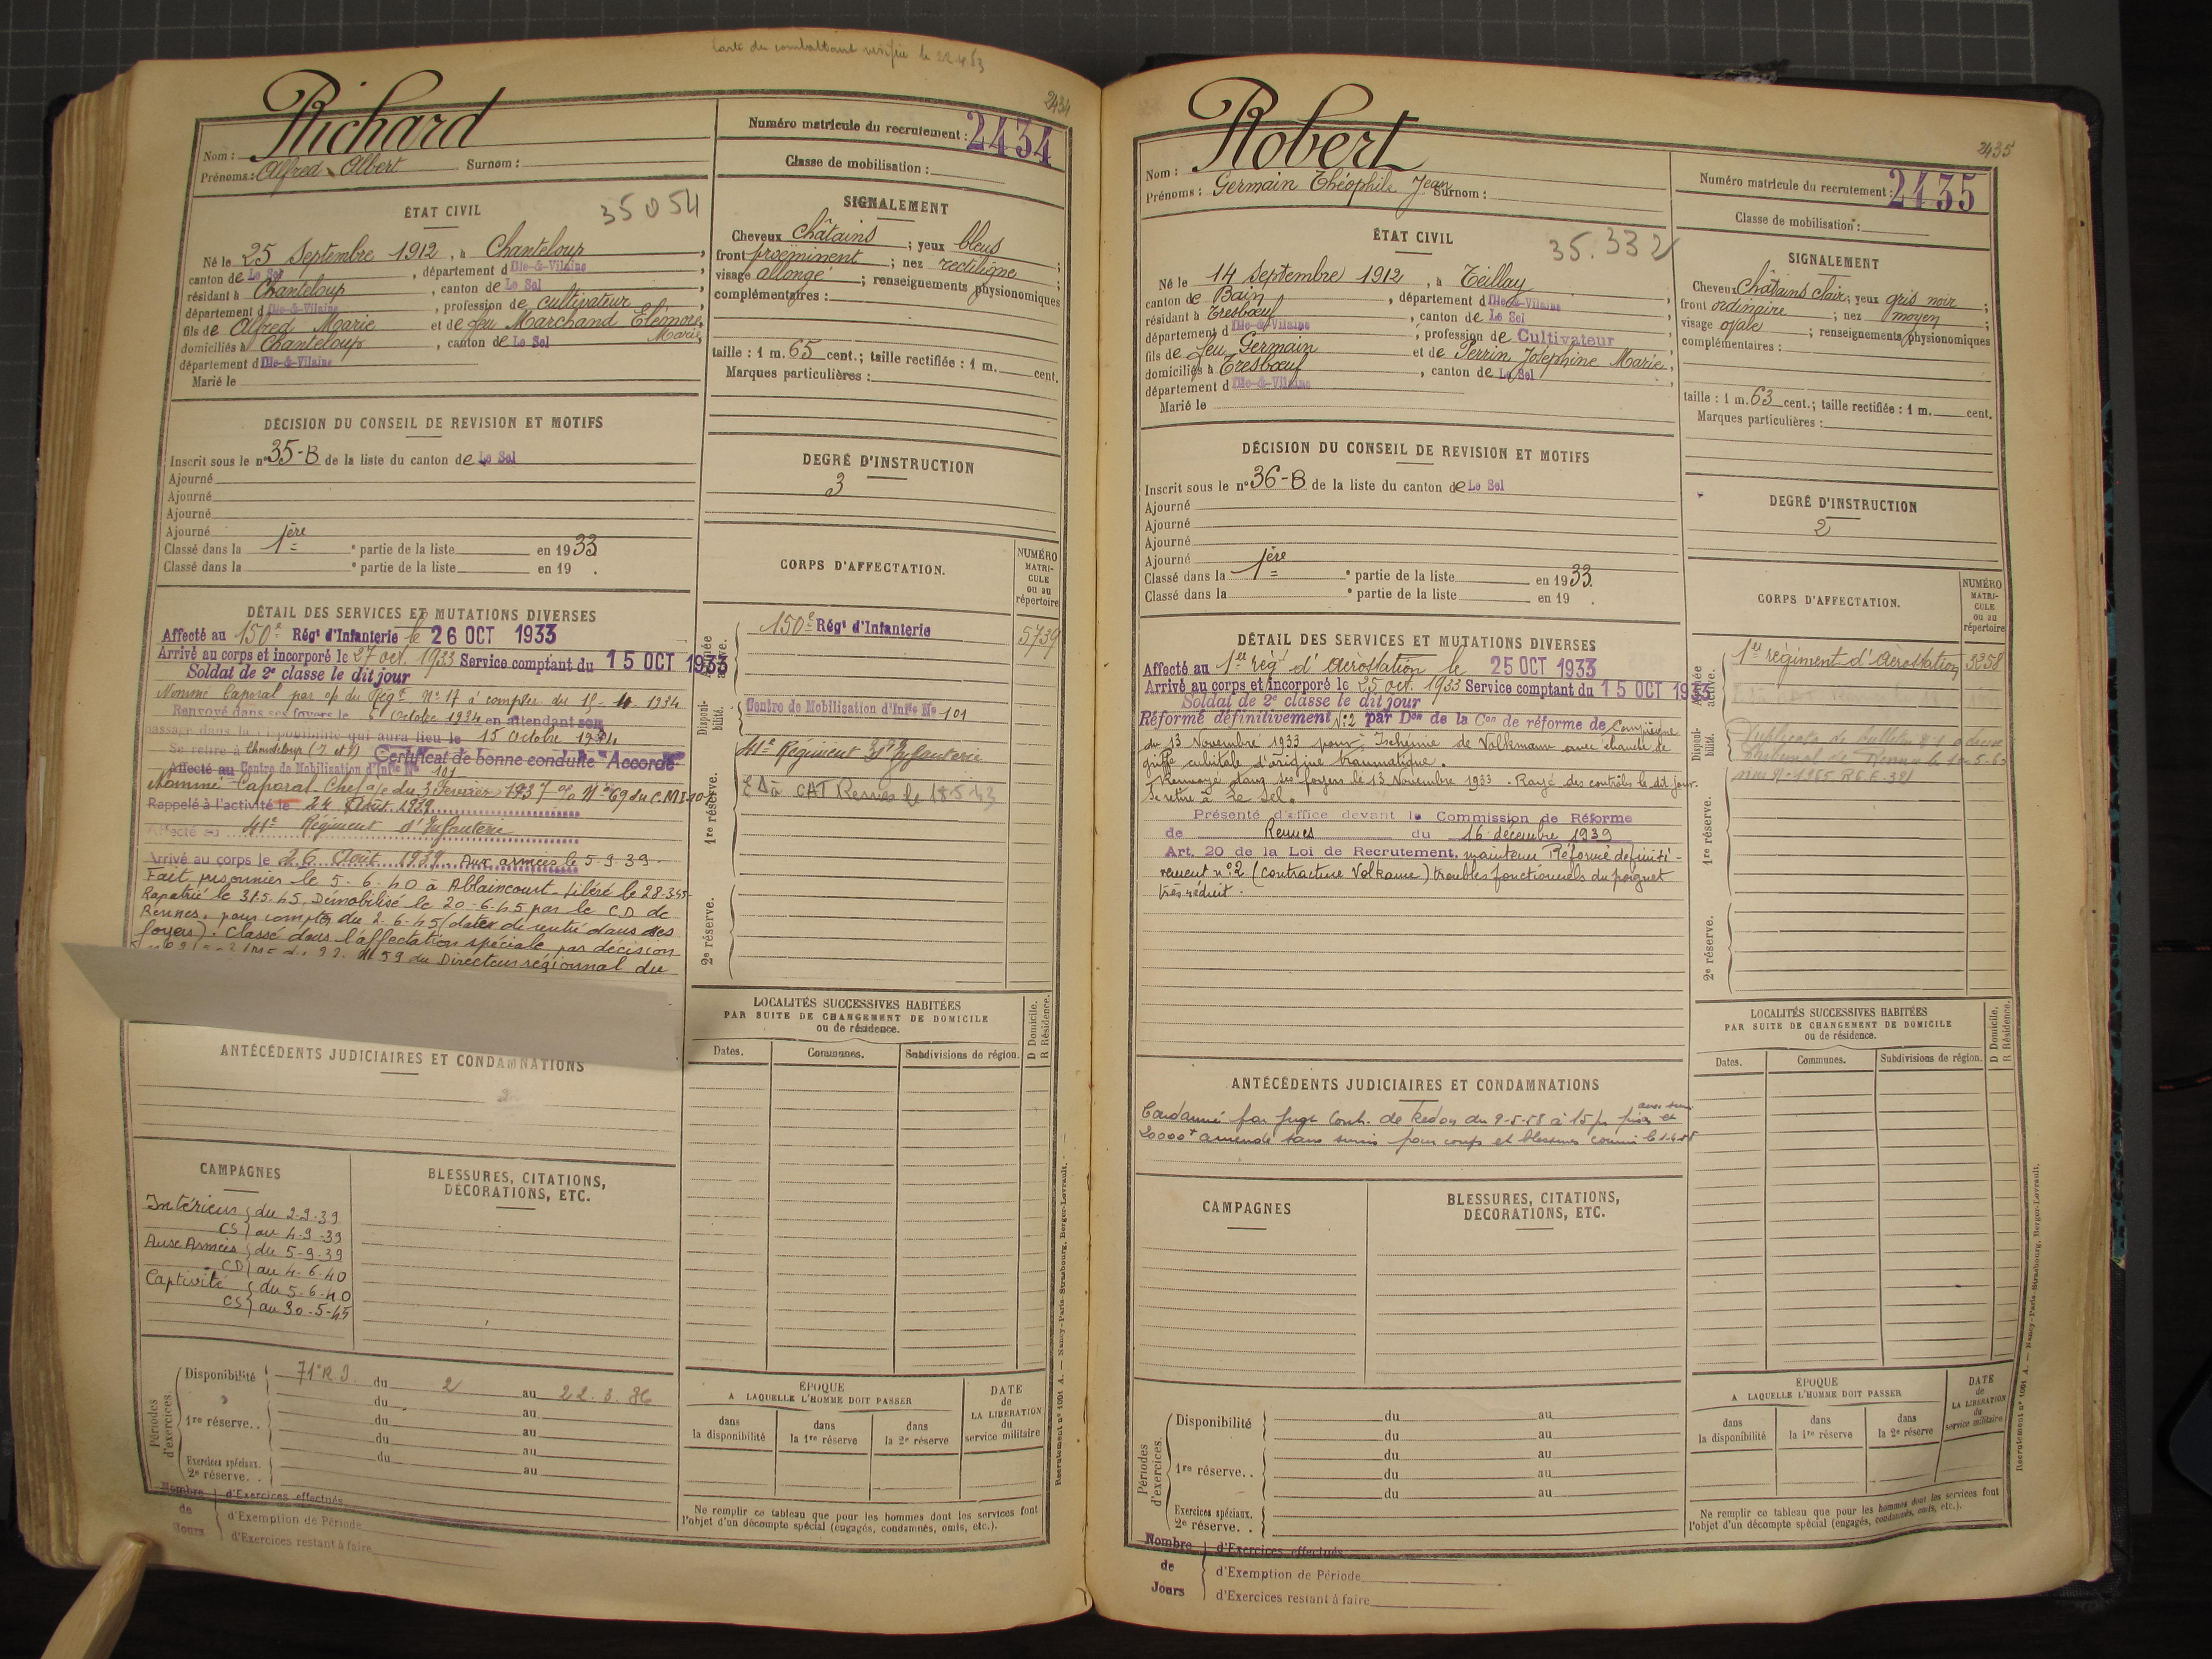 Carte du combattant vérifiée le 22.4.53
2434
Nom : Richard
Prénoms : Alfred Albert Surnom :
Numéro matricule du recrutement : 2434
Classe de mobilisation :
ÉTAT CIVIL
35054
Né le 25 Septembre 1912, à Chanteloup,
canton de Le Sel, département d Ille-&-Vilaine,
résidant à Chanteloup, canton de Le Sel,
département d Ille-&-Vilaine, profession de cultivateur,
fils de Alfred Marie et de feu Marchand Elémore
Marie,
domiciliés à Chanteloup, canton de Le Sel
département d Ille-&-Vilaine
Marié le
SIGNALEMENT
Cheveux Châtains ; yeux bleus
front proéminent ; nez rectiligne ;
visage allongé ; renseignements physionomiques
complémentaires :
taille : 1 m. 65 cent.; taille rectifiée : 1 m. cent.
Marques particulières :
DÉCISION DU CONSEIL DE REVISION ET MOTIFS
Inscrit sous le n° 35-B de la liste du canton de Le Sel
Ajourné
Ajourné
Ajourné
Ajourné
Classé dans la 1ère e partie de la liste en 1933
Classé dans la e partie de la liste en 19 .
DEGRÉ D'INSTRUCTION
3
DÉTAIL DES SERVICES ET MUTATIONS DIVERSES
Affecté au 150e Régt d'Infanterie le 26 OCT 1933
Arrivé au corps et incorporé le 27 oct. 1933 Service comptant du 15 OCT 1933
Soldat de 2e classe le dit jour
Nommé Caporal par o/ du Régt N° 17 à compter du 15-4-1934
Renvoyé dans ses foyers le 5 Octobre 1934 en attendant son
passage dans la disponibilité qui aura lieu le 15 Octobre 1934
Se retire à Chanteloup (I et V) Certificat de bonne conduite "Accordé"
Affecté au Centre de Mobilisation d'Infie N° 101
Nommé Caporal Chef a/c du 3 Fevrier 1937 o/ N° 69 du C.M.I. 101
Rappelé à l'activité le 24 Août 1939
Affecté au 41e Régiment d'Infanterie
Arrivé au corps le 26 Août 1939. Aux armées le 5-9-39.
Fait prisonnier le 5-6-40 à Ablaincourt. Libéré le 28-3-45
Rapatrié le 31-5-45. Démobilisé le 20-6-45 par le C.D. de
Rennes, pour compter du 2-6-45 (date de rentré dans ses
foyers). Classé dans l'affectation spéciale par décision
59 du Directeur régional du
CORPS D'AFFECTATION.
NUMÉRO MATRICULE ou au répertoire
Armée active.
150e Régt d'Infanterie 5739
Disponibilité.
Centre de Mobilisation d'Infie N° 101
1re réserve.
41e Régiment d'Infanterie
à CAT Rennes le 18.5.43
2e réserve.
LOCALITÉS SUCCESSIVES HABITÉES
PAR SUITE DE CHANGEMENT DE DOMICILE
ou de résidence.
D Domicile.
R Résidence.
Dates. Communes. Subdivisions de région.
ANTÉCÉDENTS JUDICIAIRES ET CONDAMNATIONS
CAMPAGNES
Intérieur du 2-9-39
CS au 4-9-39
Aux Armées du 5-9-39
CD au 4-6-40
Captivité du 5-6-40
CS au 30-5-45
BLESSURES, CITATIONS,
DÉCORATIONS, ETC.
Périodes d'exercices.
Disponibilité 71e R.I. du 2 au 22.3.36
du au
1re réserve.. du au
du au
Exercices spéciaux. du au
2e réserve. . au
Nombre de Jours
d'Exercices effectués
d'Exemption de Période
d'Exercices restant à faire
ÉPOQUE
A LAQUELLE L'HOMME DOIT PASSER
dans la disponibilité
dans la 1re réserve
dans la 2e réserve
DATE de LA LIBÉRATION du service militaire
Ne remplir ce tableau que pour les hommes dont les services font
l'objet d'un décompte spécial (engagés, condamnés, omis, etc.).
Recrutement n° 1001 A. — Nancy-Paris-Strasbourg, Berger-Levrault.
2435
Nom : Robert
Prénoms : Germain Théophile Jean Surnom :
Numéro matricule du recrutement : 2435
Classe de mobilisation :
ÉTAT CIVIL
35.332
Né le 14 Septembre 1912, à Teillay,
canton de Bain, département d Ille-&-Vilaine
résidant à Tresbœuf, canton de Le Sel
département d Ille-&-Vilaine, profession de Cultivateur
fils de feu Germain et de Perrin Joséphine Marie,
domiciliés à Tresbœuf, canton de Le Sel
département d Ille-&-Vilaine
Marié le
SIGNALEMENT
Cheveux Châtains clair; yeux gris noir ;
front ordinaire ; nez moyen ;
visage ovale ; renseignements physionomiques
complémentaires :
taille : 1 m. 63 cent.; taille rectifiée : 1 m. cent.
Marques particulières :
DÉCISION DU CONSEIL DE REVISION ET MOTIFS
Inscrit sous le n° 36-B de la liste du canton de Le Sel
Ajourné
Ajourné
Ajourné
Ajourné
Classé dans la 1ère e partie de la liste en 1933.
Classé dans la e partie de la liste en 19 .
DEGRÉ D'INSTRUCTION
2
DÉTAIL DES SERVICES ET MUTATIONS DIVERSES
Affecté au 1er régt d'Aérostation le 25 OCT 1933
Arrivé au corps et incorporé le 25 oct. 1933 Service comptant du 15 OCT 1933
Soldat de 2e classe le dit jour
Réformé définitivement N°2 par Don de la Con de réforme de Compiègne
du 13 Novembre 1933 pour: Ischémie de Volkmann avec ébauche de
griffe cubitale d'origine traumatique.
Renvoyé dans ses foyers le 13 Novembre 1933. Rayé des contrôles le dit jour.
Se retire à Le Sel.
Présenté d'office devant la Commission de Réforme
de Rennes du 16 décembre 1939
Art. 20 de la Loi de Recrutement. maintenu Réformé définiti-
vement n°2 (contracture Volkame) troubles fonctionnels du poignet
très réduit.
CORPS D'AFFECTATION.
NUMÉRO MATRICULE ou au répertoire
Armée active.
1er régiment d'Aérostation 3258
Disponibilité.
Duplicata du bulletin n°1 adressé
Tribunal de Rennes le
1re réserve.
2e réserve.
LOCALITÉS SUCCESSIVES HABITÉES
PAR SUITE DE CHANGEMENT DE DOMICILE
ou de résidence.
D Domicile.
R Résidence.
Dates. Communes. Subdivisions de région.
ANTÉCÉDENTS JUDICIAIRES ET CONDAMNATIONS
Condamné par Juge de Redon du 9-5-58 à 15 jrs prison avec sursis et
20000 f amende sans sursis pour coups et blessures commis le
CAMPAGNES
BLESSURES, CITATIONS,
DÉCORATIONS, ETC.
Périodes d'exercices.
Disponibilité du au
du au
du au
1re réserve.. du au
du au
Exercices spéciaux.
2e réserve. .
Nombre de Jours
d'Exercices effectués
d'Exemption de Période
d'Exercices restant à faire
ÉPOQUE
A LAQUELLE L'HOMME DOIT PASSER
dans la disponibilité
dans la 1re réserve
dans la 2e réserve
DATE de LA LIBÉRATION du service militaire
Ne remplir ce tableau que pour les hommes dont les services font
l'objet d'un décompte spécial (engagés, condamnés, omis, etc.).
Recrutement n° 1001 A. — Nancy-Paris-Strasbourg, Berger-Levrault.